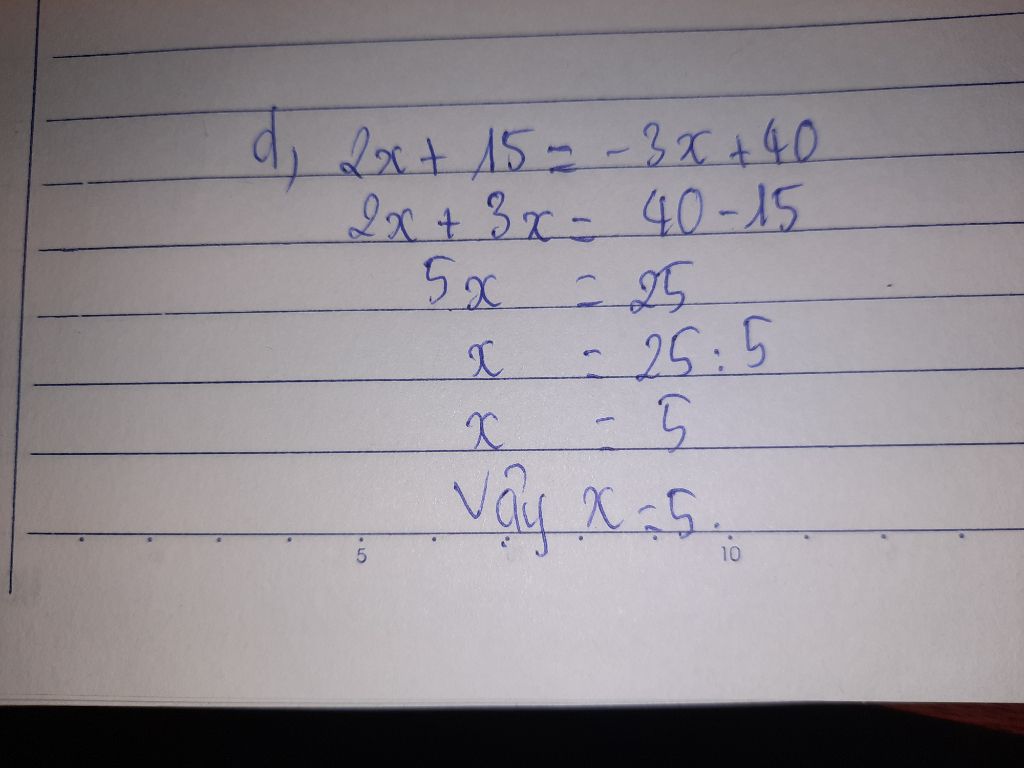 d, 2x + 15 = -3x + 40
2x + 3x = 40 - 15
5x = 25
x = 25 : 5
x = 5
Vậy x = 5.
5 10